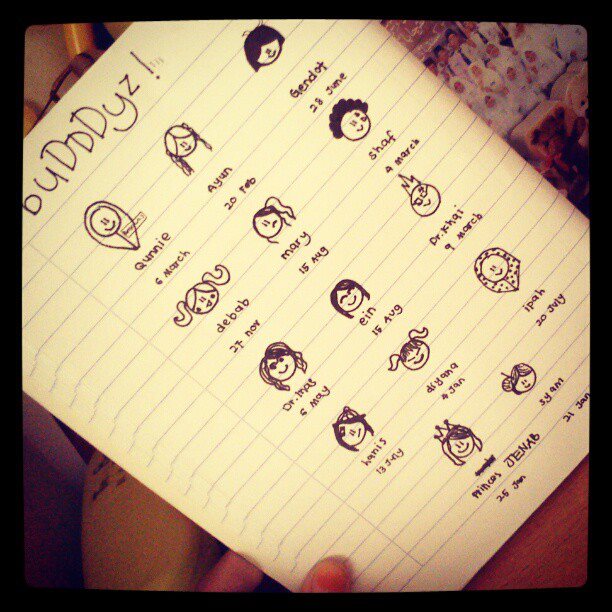 buDDDyz !!!!
Gendot
28 June
Ayun
20 Feb
Shaf
4 march
Qunnie
6 march
mary
15 Aug
Dr.Khai
9 march
debab
27 nov
ein
15 Aug
ipah
20 July
Dr.inas
6 may
diyana
4 Jan
hanis
syam
21 Jan
Princes JENAB
25 Jan